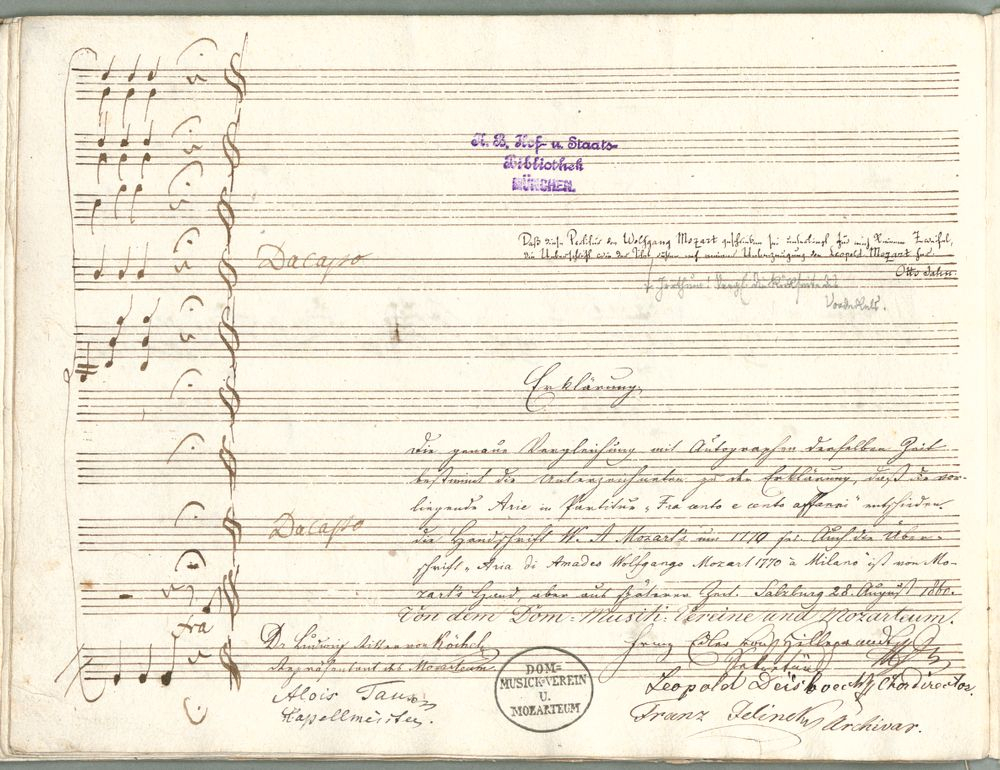 K. B. Hof- u. Staats-
Bibliothek
MÜNCHEN.
Daß diese Partitur von Wolfgang Mozart geschrieben sei unterliegt für mich keinem Zweifel,
die Ueberschrift wie der Titel rühren nach meiner Ueberzeugung von Leopold Mozart her.
Otto Jahn.
Dacapo
Irrthum! Vergl. die Rückseite des
Vorderbl.
Erklärung.
Die genaue Vergleichung mit Autographen derselben Zeit
bestimmt die Unterzeichneten zu der Erklärung, daß die vor-
liegende Arie in Partitur „Fra cento e cento affanni" entschieden
die Handschrift W. A Mozart's um 1779 sei. Auch die Über-
schrift „Aria di Amadeo Wolfgango Mozart 1770 à Milano" ist von Mo-
zart's Hand, aber aus späterer Zeit. Salzburg 28. August 1860.
Dacapo
Von dem Dom-Musik-Vereine und Mozarteum.
fra
Dr Ludwig Ritter von Köchel
Repräsentant des Mozarteum
Franz Edler von Hilleprandt
Sekretär
Alois Taux
Kapellmeister.
Leopold Deisboeck Chordirector.
Franz Jelinek Archivar.
DOM-
MUSICK-VEREIN
U.
MOZARTEUM